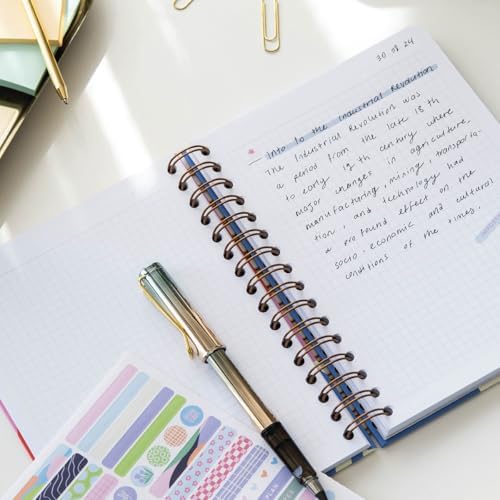 30 08 24
Into to the Industrial Revolution
The Industrial Revolution was
a period from the late 18th
to early 19th century where
major changes in agriculture,
manufacturing, mining, transporta-
tion, and technology had
a profound effect on the
socio-economic and cultural
conditions of the times.